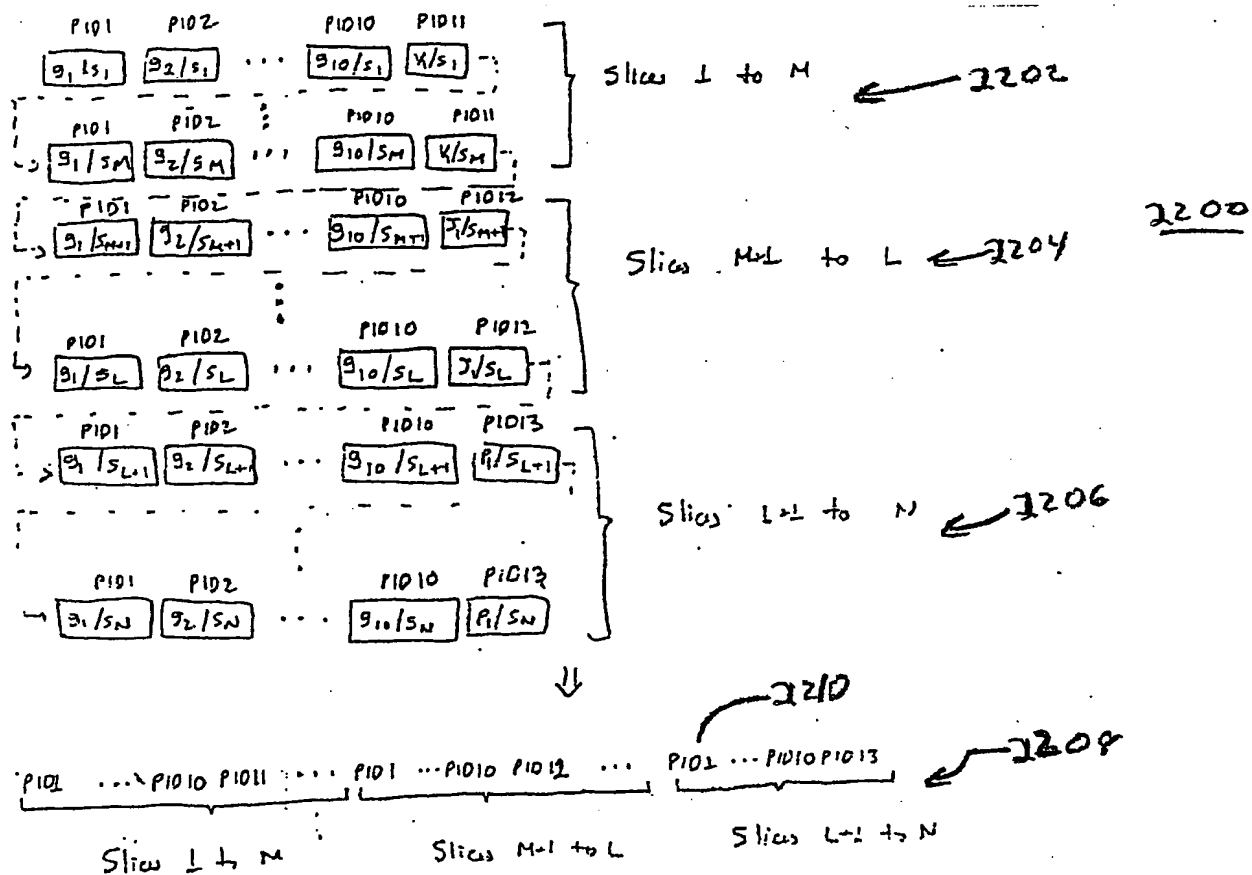 PID1 PID2 PID10 PID11
g1/s1 g2/s1 ... g10/s1 V1/s1
Slices 1 to M
2202
PID1 PID2 PID10 PID11
g1/sM g2/sM ... g10/sM V1/sM
PID1 PID2 PID10 PID12
g1/sM+1 g2/sM+1 ... g10/sM+1 J1/sM+1
2200
Slices M+1 to L
2204
PID1 PID2 PID10 PID12
g1/sL g2/sL ... g10/sL J1/sL
PID1 PID2 PID10 PID13
g1/sL+1 g2/sL+1 ... g10/sL+1 P1/sL+1
Slices L+1 to N
2206
PID1 PID2 PID10 PID13
g1/sN g2/sN ... g10/sN P1/sN
2210
2208
PID1 ... PID10 PID11 ... PID1 ... PID10 PID12 ... PID1 ... PID10 PID13
Slices 1 to M Slices M+1 to L Slices L+1 to N